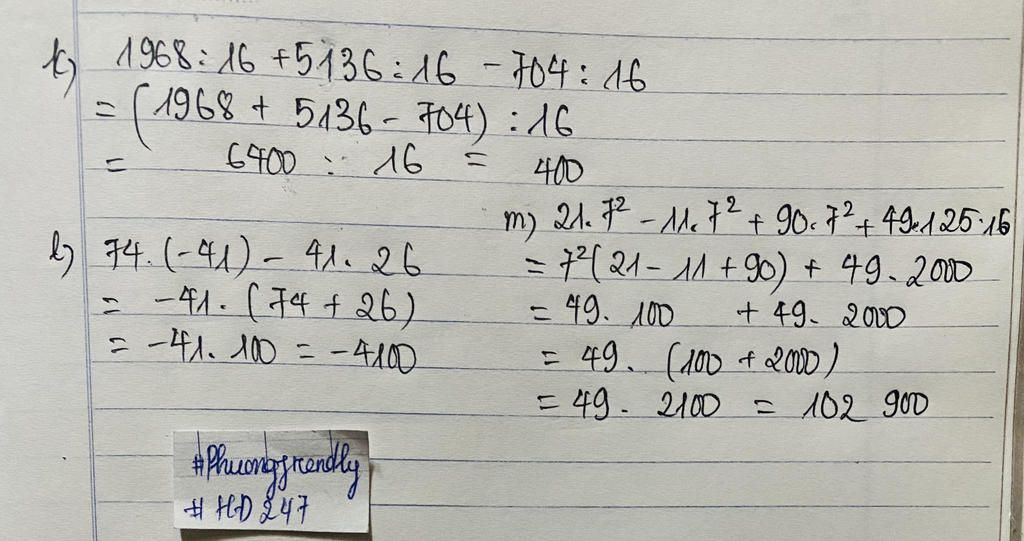 k) 1968 : 16 + 5136 : 16 - 704 : 16
= (1968 + 5136 - 704) : 16
= 6400 : 16 = 400
l) 74. (-41) - 41. 26
= -41. (74 + 26)
= -41. 100 = -4100
m) 21. 7² - 11. 7² + 90. 7² + 49. 125. 16
= 7² (21 - 11 + 90) + 49. 2000
= 49. 100 + 49. 2000
= 49. (100 + 2000)
= 49. 2100 = 102 900
#Phuongfrendly
#HD247